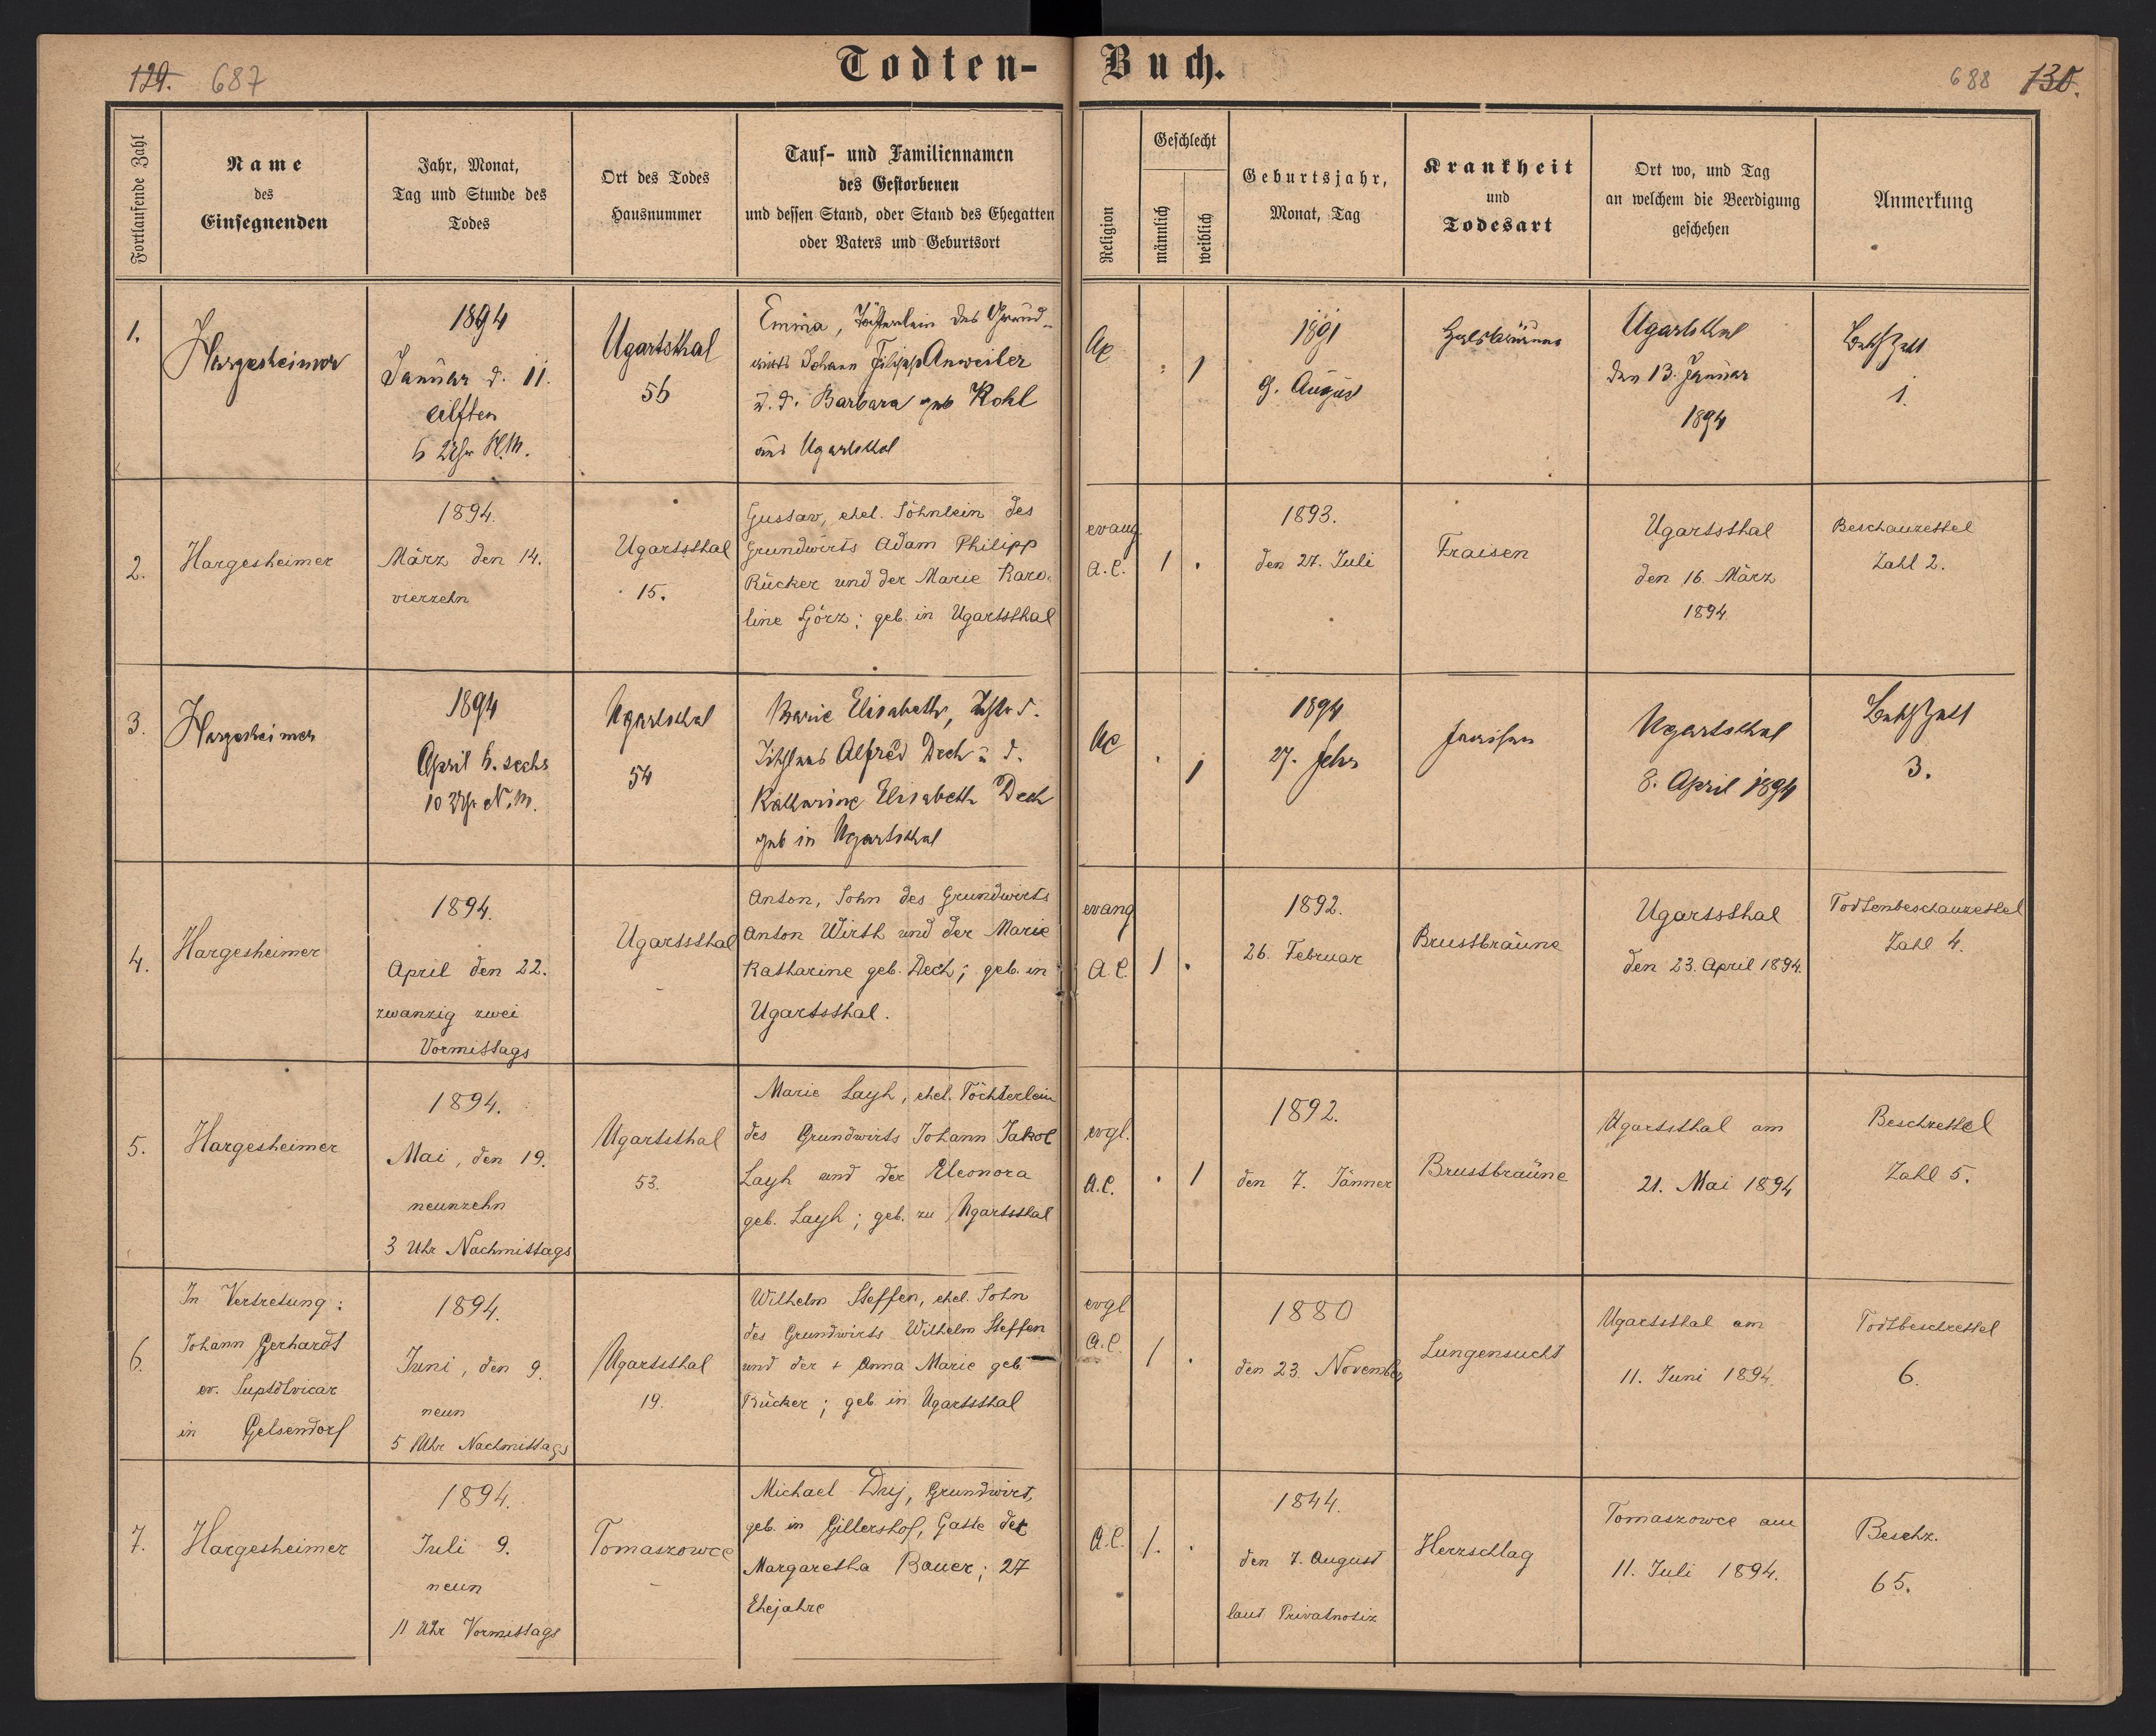 Todten- Buch.
129. 687
688 130.
Fortlaufende Zahl
Name
des
Einsegnenden
Jahr, Monat,
Tag und Stunde des
Todes
Ort des Todes
Hausnummer
Tauf- und Familiennamen
des Gestorbenen
und dessen Stand, oder Stand des Ehegatten
oder Vaters und Geburtsort
Religion
Geschlecht
männlich
weiblich
Geburtsjahr,
Monat, Tag
Krankheit
und
Todesart
Ort wo, und Tag
an welchem die Beerdigung
geschehen
Anmerkung
1.
Hargesheimer
1894
Januar d. 11.
eilften
6 Uhr N.M.
Ugartsthal
56
Emma, Töchterlein des Grund-
wirts Johann Filipp Anweiler
u. d. Barbara geb Kohl
aus Ugartsthal
AC
1
1891
9. August
Halsbräune
Ugartsthal
den 13. Januar
1894
1.
2.
Hargesheimer
1894.
März den 14.
vierzehn
Ugartsthal
15.
Gustav, ehel. Söhnlein des
Grundwirts Adam Philipp
Rücker und der Marie Karo-
line Görz; geb. in Ugartsthal
evang
A.C.
1 .
1893.
den 27. Juli
Fraisen
Ugartsthal
den 16. März
1894
Beschauzettel
Zahl 2.
3.
Hargesheimer
1894
April 6. sechs
10 Uhr N.M.
Ugartsthal
54
Marie Elisabeth, d.
Alfred Dech u. d.
Katharine Elisabeth Dech
geb in Ugartsthal
AC
. 1
1894
27. Febr
Fraisen
Ugartsthal
8. April 1894
3.
4.
Hargesheimer
1894.
April den 22.
zwanzig zwei
Vormittags
Ugartsthal
Anton, Sohn des Grundwirts
Anton Wirth und der Marie
Katharine geb. Dech; geb. in
Ugartsthal.
evang
A.C.
1 .
1892.
26. Februar
Brustbräune
Ugartsthal
den 23. April 1894.
Todtenbeschauzettel
Zahl 4.
5.
Hargesheimer
1894.
Mai, den 19.
neunzehn
3 Uhr Nachmittags
Ugartsthal
53.
Marie Layh, ehel. Töchterlein
des Grundwirts Johann Jakob
Layh und der Eleonora
geb. Layh; geb. zu Ugartsthal
evgl.
A.C.
. 1
1892.
den 7. Jänner
Brustbräune
Ugartsthal am
21. Mai 1894
Beschzettel
Zahl 5.
6.
In Vertretung:
Johann Gerhardt
ev. Suptdlvicar
in Gelsendorf
1894.
Juni, den 9.
neun
5 Uhr Nachmittags
Ugartsthal
19.
Wilhelm Steffen, ehel. Sohn
des Grundwirts Wilhelm Steffen
und der + Anna Marie geb.
Rücker; geb in Ugartsthal
evgl
A.C.
1 .
1880
den 23. November
Lungensucht
Ugartsthal am
11. Juni 1894.
Todtbeschzettel
6.
7.
Hargesheimer
1894.
Juli 9.
neun
11 Uhr Vormittags
Tomaszowce
Michael Drij, Grundwirt,
geb. in Gillershof, Gatte der
Margaretha Bauer; 27
Ehejahre
A.C.
1. .
1844.
den 7. August
laut Privatnotiz
Herzschlag
Tomaszowce am
11. Juli 1894.
Beschz.
65.